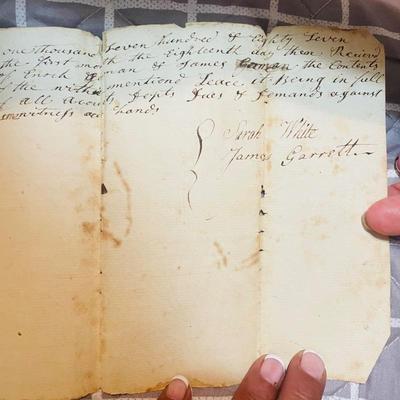 one Thousand Seven hundred & Eighty Seven
the first month the Eighteenth day then Receivd
of Enoch man & James the Contents
of the within mentiond Lease it Being in full
of all Debts Dues & Demands against
witness our hands
Sarah White
James Garrett